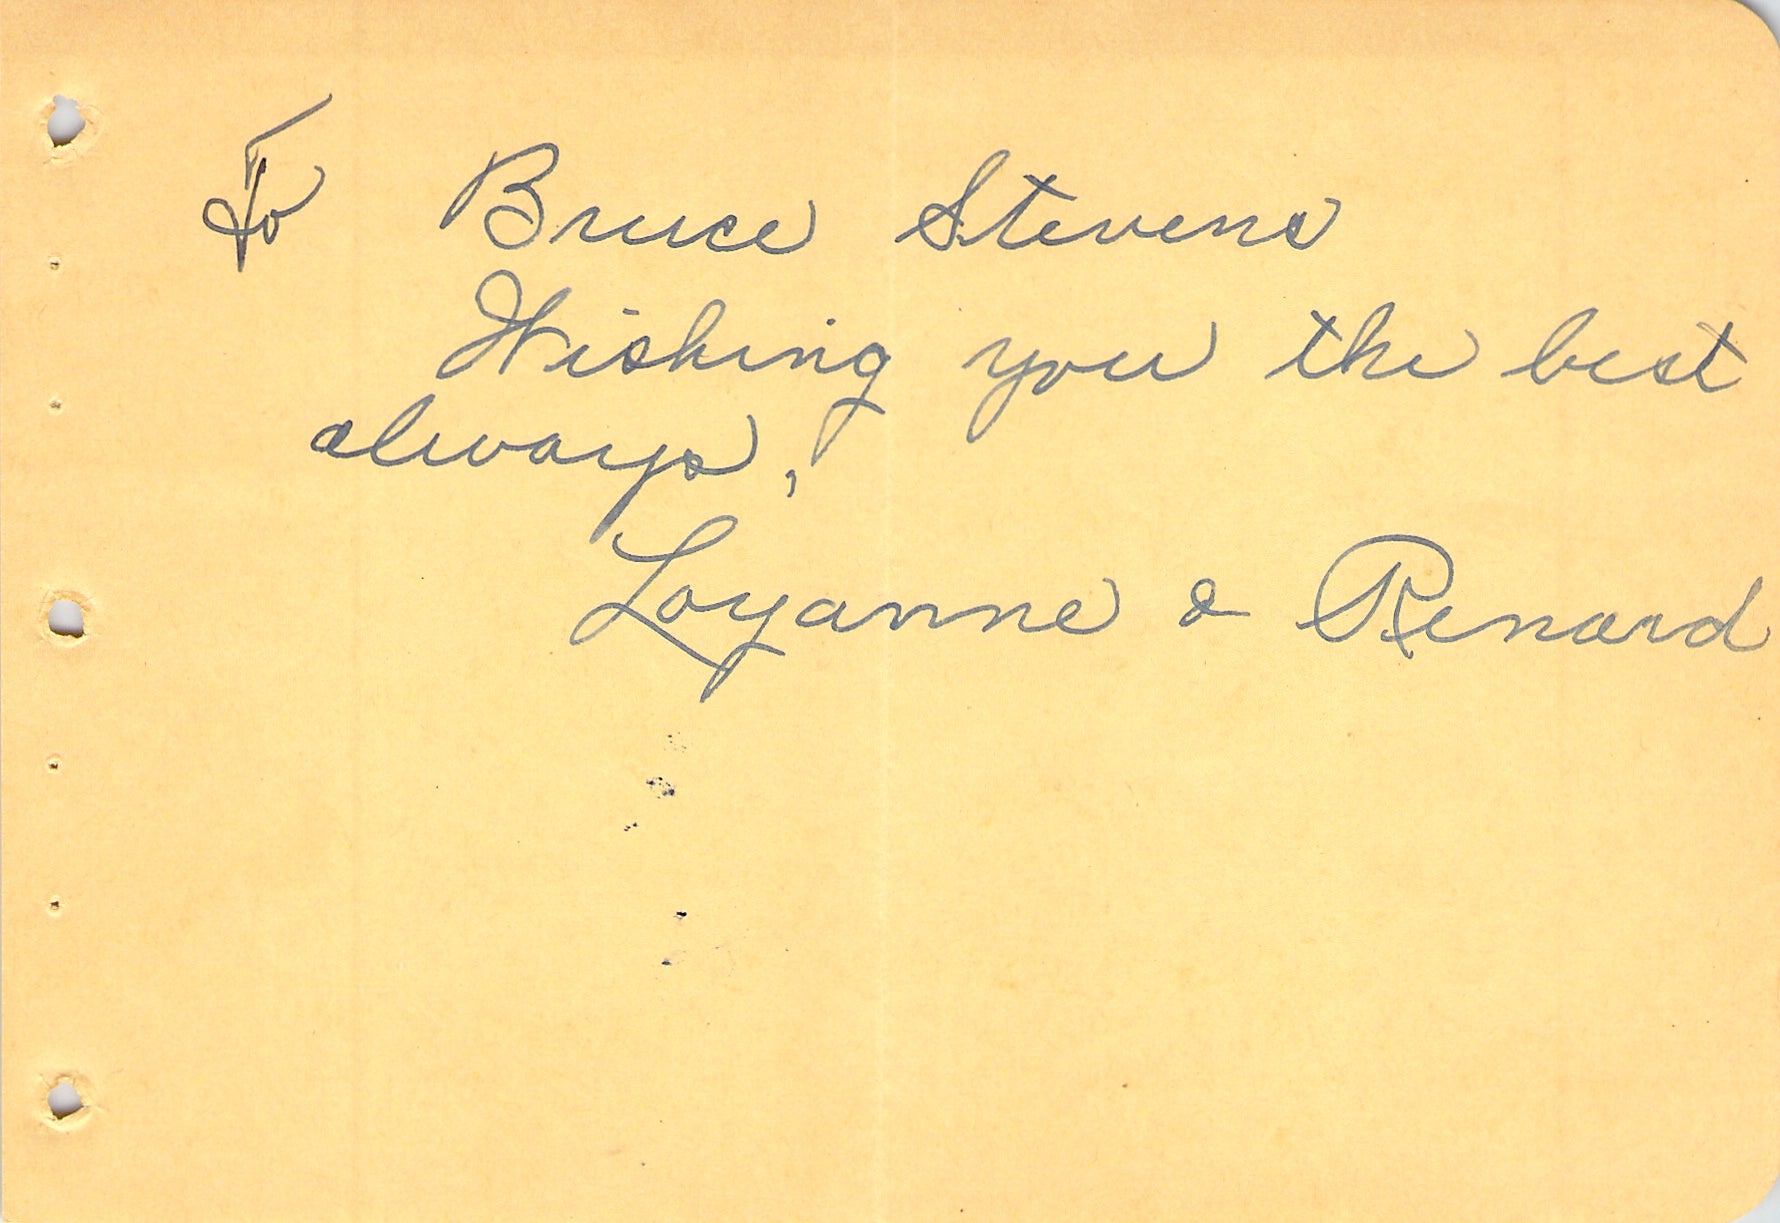 To Bruce Stevens
Wishing you the best
always,
Loyanne & Renard